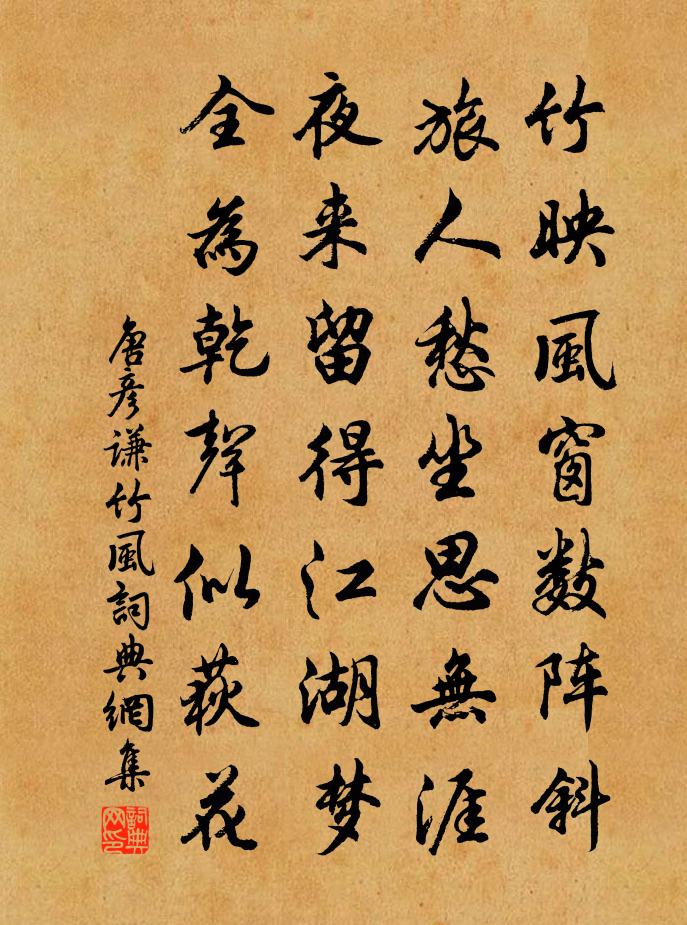 竹映風窗数阵斜
旅人愁坐思無涯
夜来留得江湖梦
全為乾聲似荻花
唐彦谦竹風詞典網集
詞典网印